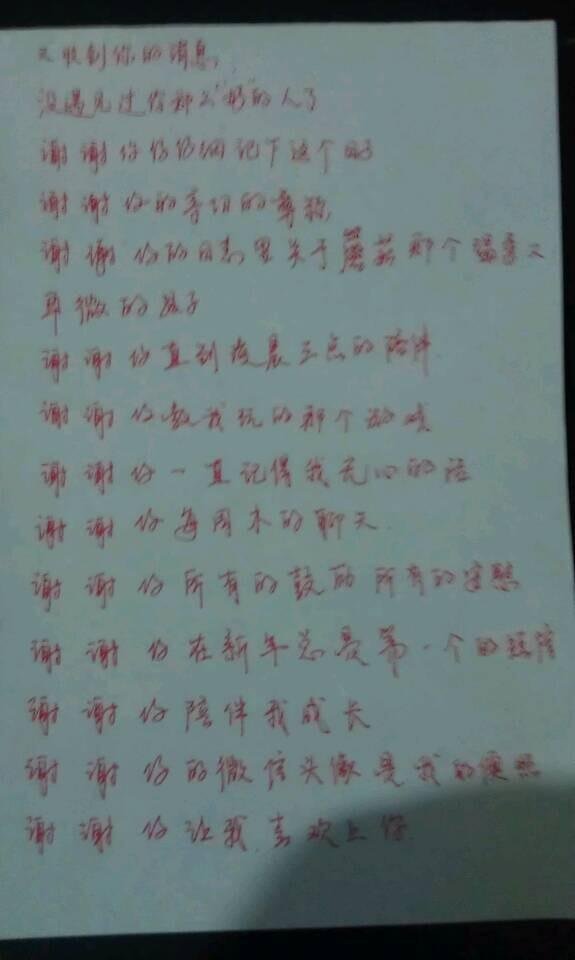 收到你的消息,
没遇见过你那么“好”的人了
谢谢你仔仔细细记下这个日子
谢谢你的亲切的尊称
谢谢你的日志里关于蘑菇那个温柔又
卑微的孩子
谢谢你直到凌晨三点的陪伴
谢谢你教我玩的那个游戏
谢谢你一直记得我无心的话
谢谢你每周末的聊天
谢谢你所有的鼓励所有的安慰
谢谢你在新年总是第一个的短信
谢谢你陪伴我成长
谢谢你的微信头像是我的傻照
谢谢你让我喜欢上你